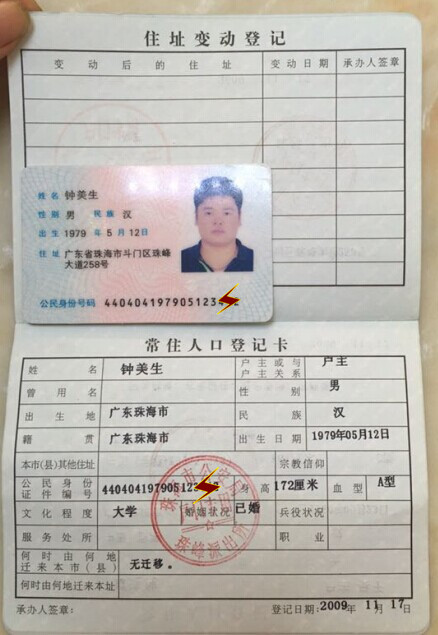 住址变动登记
变动后的住址 变动日期 承办人签章
姓名 钟美生
性别 男 民族 汉
出生 1979 年 5 月 12 日
住址 广东省珠海市斗门区珠峰
大道258号
公民身份号码 440404197905123
常住人口登记卡
姓名 钟美生 户主或与户主关系 户主
曾用名 性别 男
出生地 广东珠海市 民族 汉
籍贯 广东珠海市 出生日期 1979年05月12日
本市(县)其他住址 宗教信仰
公民身份证件编号 44040419790512 身高 172厘米 血型 A型
文化程度 大学 婚姻状况 已婚 兵役状况
服务处所 职业
何时由何地迁来本市(县) 无迁移。
何时由何地迁来本址
承办人签章: 登记日期:2009年11月17日
珠海市公安局
珠峰派出所